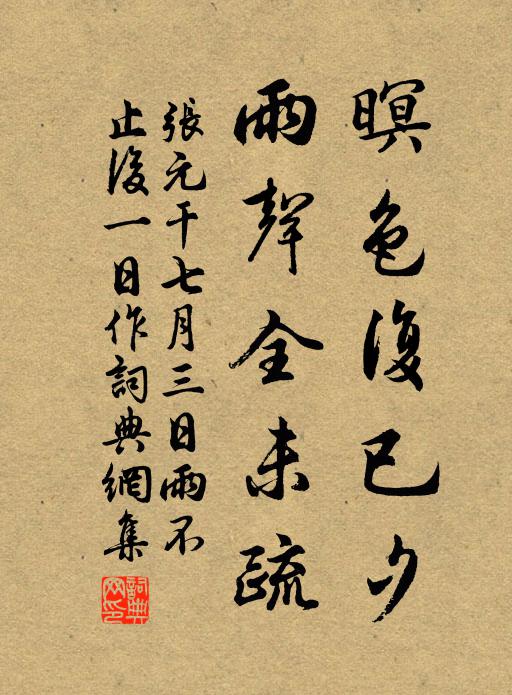 暝色復已夕
雨聲全未疏
張元干七月三日雨不
止後一日作詞典網集
詞典網印